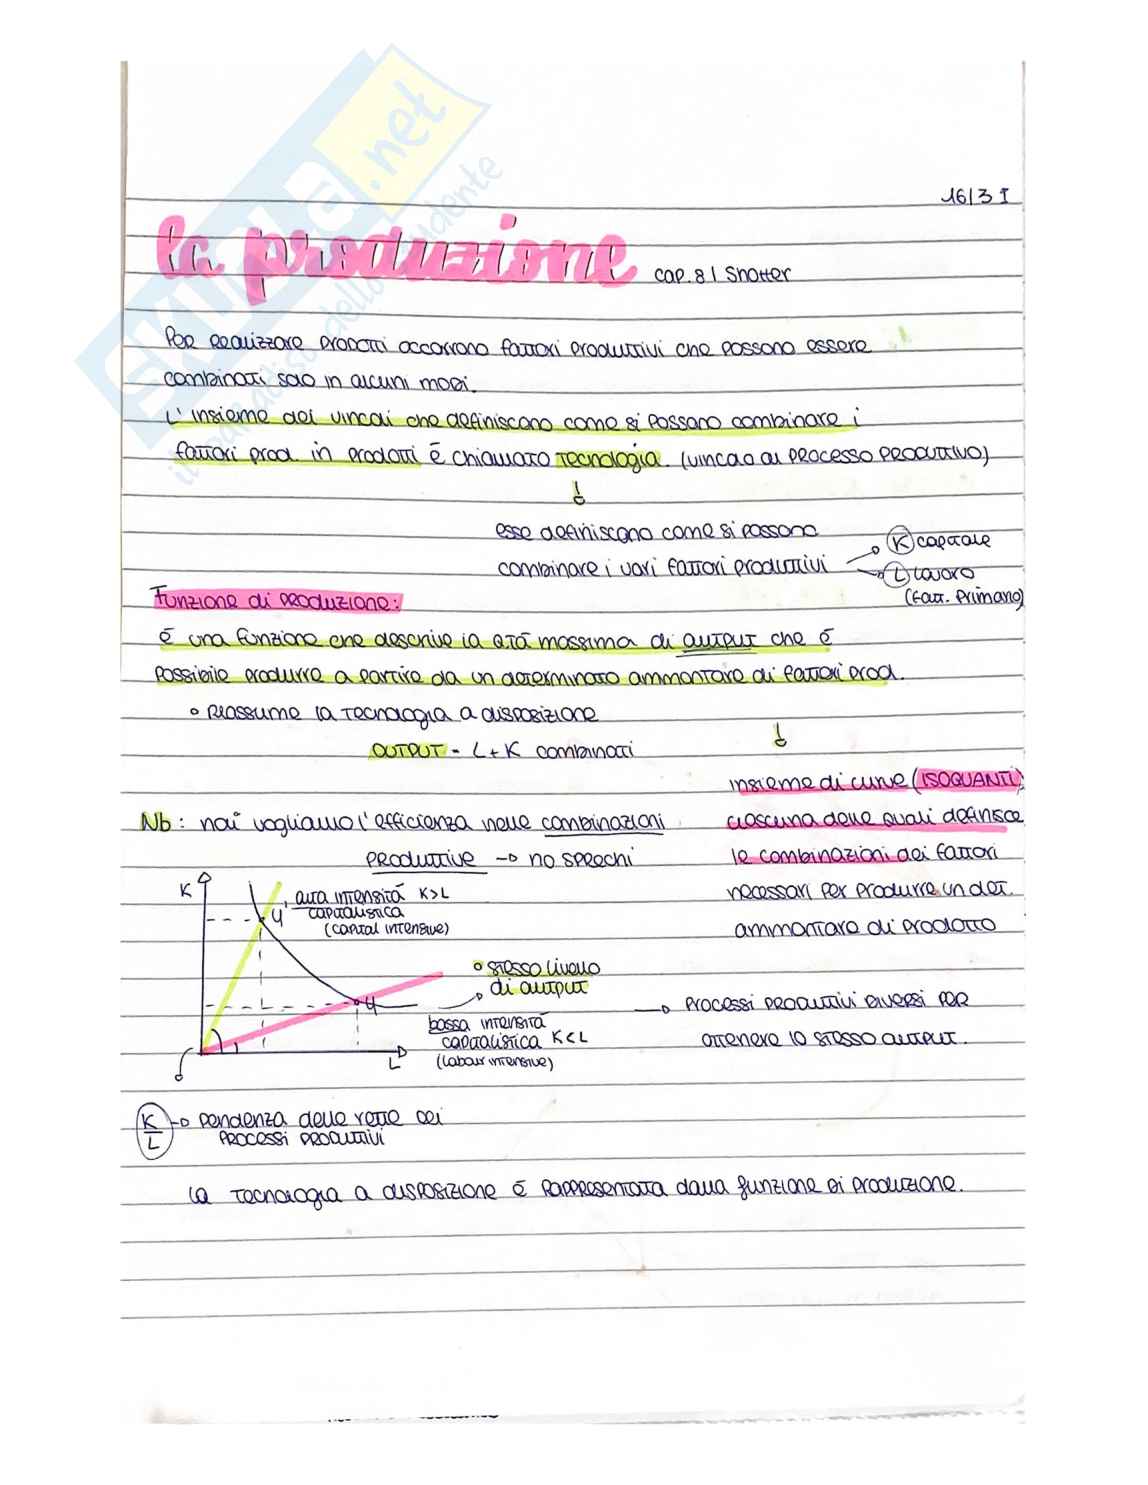 16/3 I
la produzione cap. 8 | Shotter
Per realizzare prodotti occorrono fattori produttivi che possono essere
combinati solo in alcuni modi.
L'insieme dei vincoli che definiscono come si possano combinare i
fattori prod. in prodotti è chiamato tecnologia. (vincolo al processo produttivo)
esse definiscono come si possono
combinare i vari fattori produttivi
K capitale
L lavoro
(fatt. primario)
Funzione di produzione:
è una funzione che descrive la q.tà massima di output che è
possibile produrre a partire da un determinato ammontare di fattori prod.
• Riassume la tecnologia a disposizione
OUTPUT = L + K combinati
insieme di curve (ISOQUANTI)
ciascuna delle quali definisce
le combinazioni dei fattori
necessari per produrre un det.
ammontare di prodotto
Nb: noi vogliamo l'efficienza nelle combinazioni
produttive → no sprechi
K
alta intensità K>L
capitalistica
(capital intensive)
y
• stesso livello
di output
y
bassa intensità
capitalistica K<L
(labour intensive)
L
→ processi produttivi diversi per
ottenere lo stesso output.
K/L → pendenza delle rette dei
processi produttivi
la tecnologia a disposizione è rappresentata dalla funzione di produzione.
SKUOLA.net
il paradiso dello studente